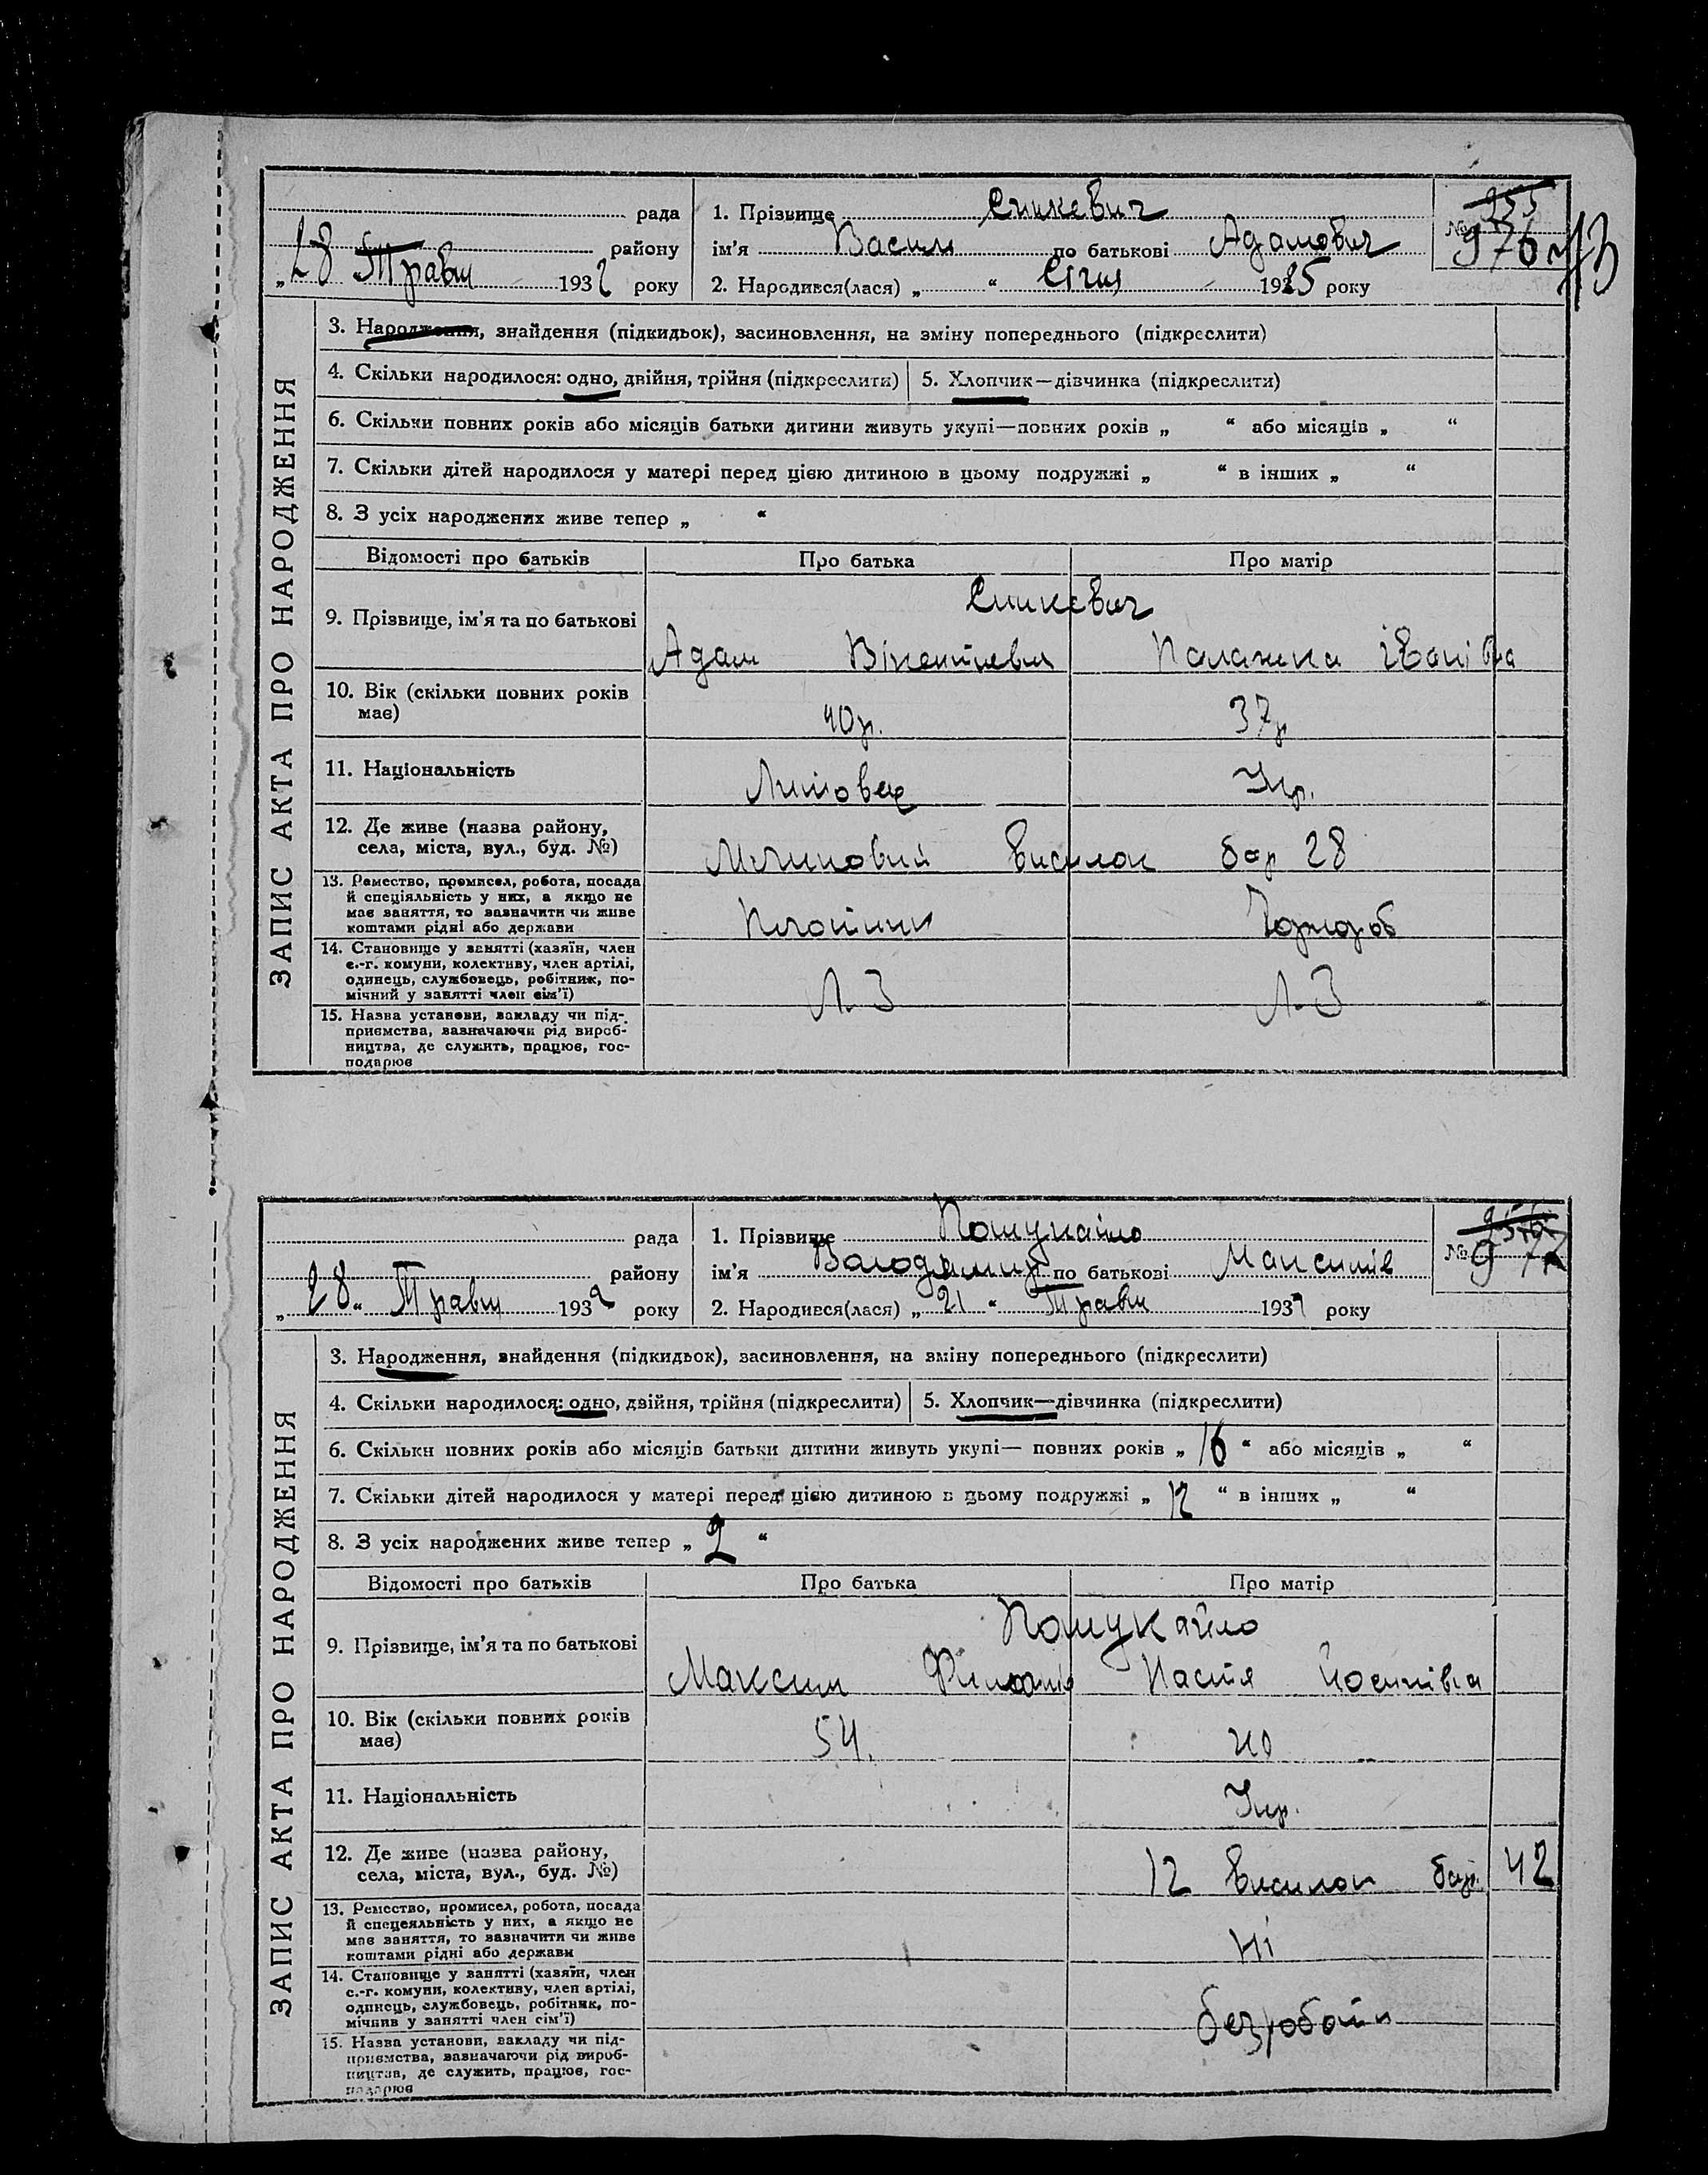 рада
району
„28" Травн 1932 року
1. Прізвище
ім'я Василь по батькові Адамович
2. Народився(лася) „ “ Січня 1925 року
№ 976
ЗАПИС АКТА ПРО НАРОДЖЕННЯ
3. Народження, знайдення (підкидьок), засиновлення, на зміну попереднього (підкреслити)
4. Скільки народилося: одно, двійня, трійня (підкреслити)
5. Хлопчик—дівчинка (підкреслити)
6. Скільки повних років або місяців батьки дитини живуть укупі—повних років „ “ або місяців „ “
7. Скільки дітей народилося у матері перед цією дитиною в цьому подружжі „ “ в інших „ “
8. З усіх народжених живе тепер „ “
Відомості про батьків Про батька Про матір
9. Прізвище, ім'я та по батькові
Адам Палажка Іванівна
10. Вік (скільки повних років має)
40р. 37р
11. Національність
Литовец Укр.
12. Де живе (назва району, села, міста, вул., буд. №)
висилок бар 28
13. Ремество, промисел, робота, посада
й спеціяльність у них, а якщо не
має заняття, то зазначити чи живе
коштами рідні або держави
14. Становище у занятті (хазяїн, член
с.-г. комуни, колективу, член артілі,
одинець, службовець, робітник, по-
мічний у занятті член сім'ї)
15. Назва установи, закладу чи під-
приємства, зазначаючи рід вироб-
ництва, де служить, працює, гос-
подарює
рада
району
„28“ Травн 1932 року
1. Прізвище Пошукайло
ім'я Володимир по батькові Максимів
2. Народився(лася) „21“ Травн 1932 року
№ 977
ЗАПИС АКТА ПРО НАРОДЖЕННЯ
3. Народження, знайдення (підкидьок), засиновлення, на зміну попереднього (підкреслити)
4. Скільки народилося: одно, двійня, трійня (підкреслити)
5. Хлопчик—дівчинка (підкреслити)
6. Скільки повних років або місяців батьки дитини живуть укупі— повних років „16“ або місяців „ “
7. Скільки дітей народилося у матері перед цією дитиною в цьому подружжі „12“ в інших „ “
8. З усіх народжених живе тепер „2“
Відомості про батьків Про батька Про матір
Пошукайло
9. Прізвище, ім'я та по батькові
Максим Настя Йосипівна
10. Вік (скільки повних років має)
54. 40
11. Національність
Укр.
12. Де живе (назва району, села, міста, вул., буд. №)
12 висилок бар. 42
13. Ремество, промисел, робота, посада
й спецеяльність у них, а якщо не
має заняття, то зазначити чи живе
коштами рідні або держави
Ні
14. Становище у занятті (хазяїн, член
с.-г. комуни, колективу, член артілі,
одинець, службовець, робітник, по-
мічнив у занятті член сім'ї)
безробоття
15. Назва установи, закладу чи під-
приємства, зазначаючи рід вироб-
ництва, де служить, працює, гос-
подарює